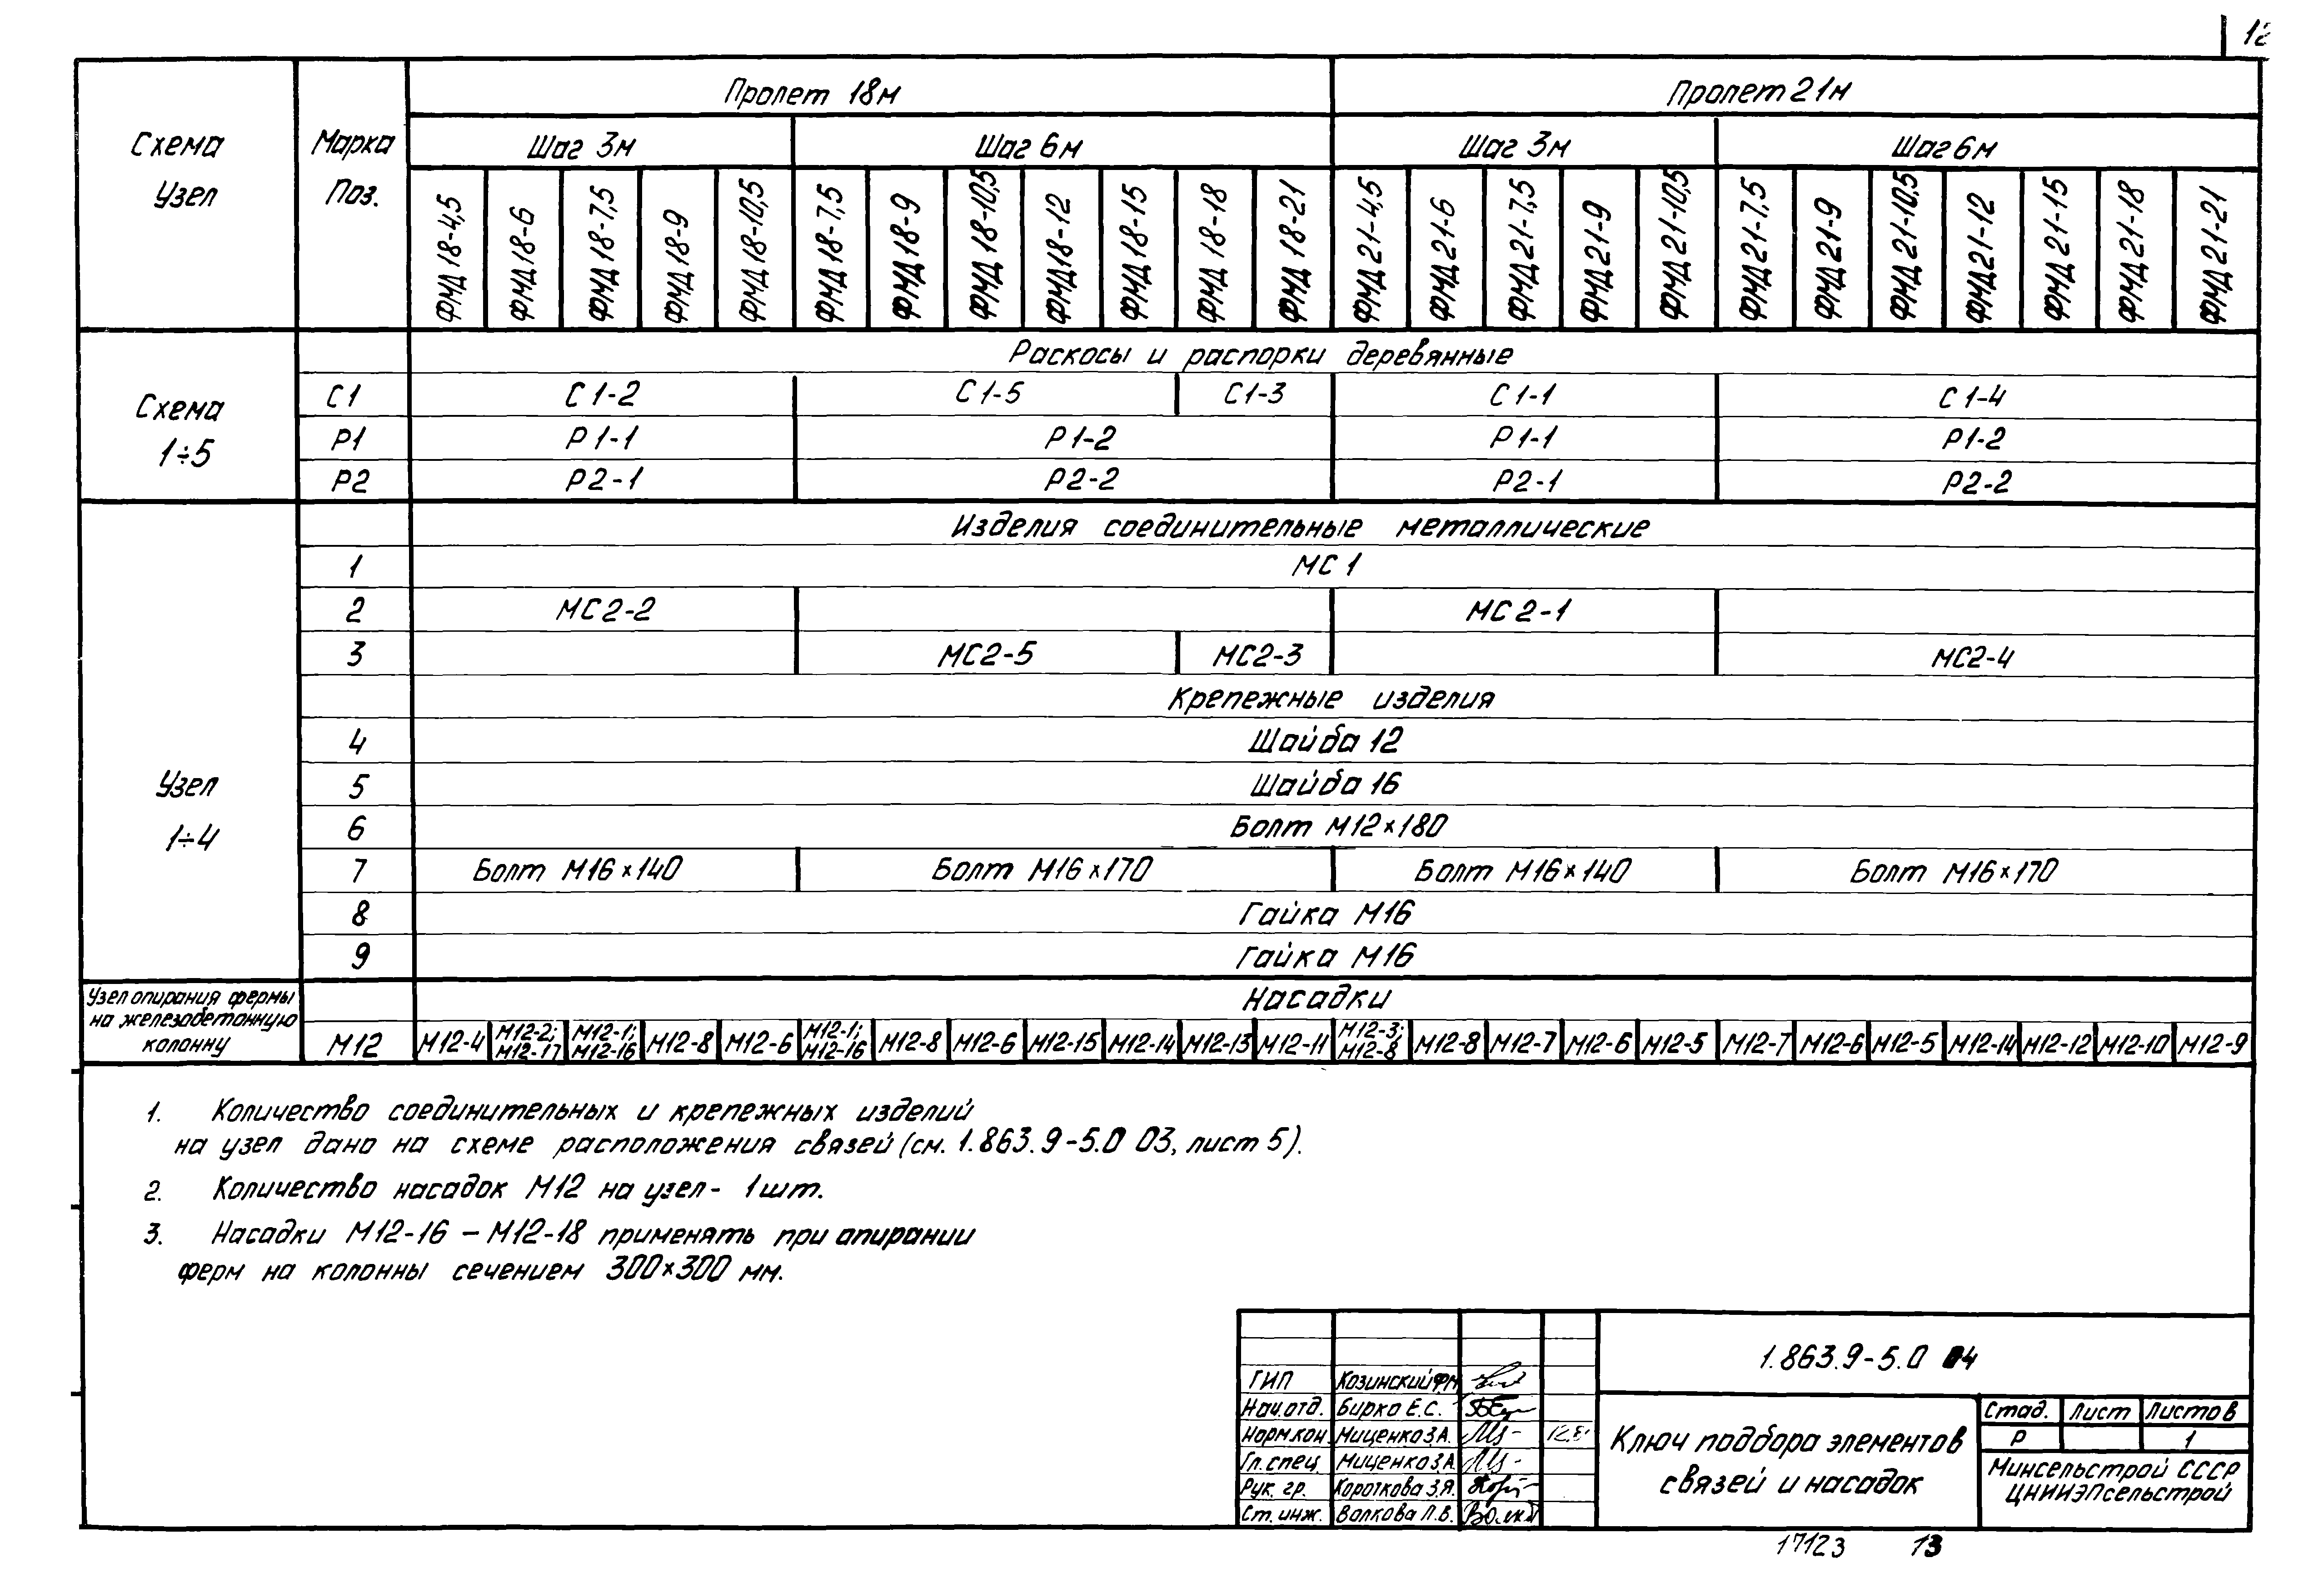 12
Схема Узел
Марка Поз.
Пролет 18м
Пролет 21м
Шаг 3м
Шаг 6м
Шаг 3м
Шаг 6м
ФМД 18-4,5
ФМД 18-6
ФМД 18-7,5
ФМД 18-9
ФМД 18-10,5
ФМД 18-7,5
ФМД 18-9
ФМД 18-10,5
ФМД 18-12
ФМД 18-15
ФМД 18-18
ФМД 18-21
ФМД 21-4,5
ФМД 21-6
ФМД 21-7,5
ФМД 21-9
ФМД 21-10,5
ФМД 21-7,5
ФМД 21-9
ФМД 21-10,5
ФМД 21-12
ФМД 21-15
ФМД 21-18
ФМД 21-21
Раскосы и распорки деревянные
Схема 1÷5
С1 С1-2 С1-5 С1-3 С1-1 С1-4
Р1 Р1-1 Р1-2 Р1-1 Р1-2
Р2 Р2-1 Р2-2 Р2-1 Р2-2
Изделия соединительные металлические
Узел 1÷4
1 МС1
2 МС2-2 МС2-1
3 МС2-5 МС2-3 МС2-4
Крепежные изделия
4 Шайба 12
5 Шайба 16
6 Болт М12×180
7 Болт М16×140 Болт М16×170 Болт М16×140 Болт М16×170
8 Гайка М16
9 Гайка М16
Узел опирания фермы
на железобетонную
колонну
Насадки
М12 М12-4 М12-2; М12-17 М12-1; М12-16 М12-8 М12-6 М12-1; М12-16 М12-8 М12-6 М12-15 М12-14 М12-13 М12-11 М12-3; М12-8 М12-8 М12-7 М12-6 М12-5 М12-7 М12-6 М12-5 М12-14 М12-12 М12-10 М12-9
1. Количество соединительных и крепежных изделий
на узел дано на схеме расположения связей (см. 1.863.9-5.0 03, лист 5).
2. Количество насадок М12 на узел - 1шт.
3. Насадки М12-16 – М12-18 применять при опирании
ферм на колонны сечением 300×300 мм.
ГИП Козинский Ф.М.
Нач.отд. Бирко Е.С.
Норм.кон. Миценко З.А.
Гл.спец. Миценко З.А.
Рук. гр. Короткова З.Я.
Ст. инж. Волкова Л.В.
1.863.9-5.0 04
Ключ подбора элементов
связей и насадок
Стад. Лист Листов
Р 1
Минсельстрой СССР
ЦНИИЭПсельстрой
17123 13